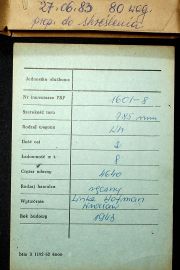 27.06.83 80 wag.
prop. do skreślenia
Jednostka służbowa
Nr inwentarza PKP 1601-8
Szerokość toru 785 mm
Rodzaj wagonu
Ilość osi
Ładowność w t. 8
Ciężar własny 4640
Rodzaj hamulca ręczny
Wytwórnia Linke Hofman
Wrocław
Rok budowy 1943